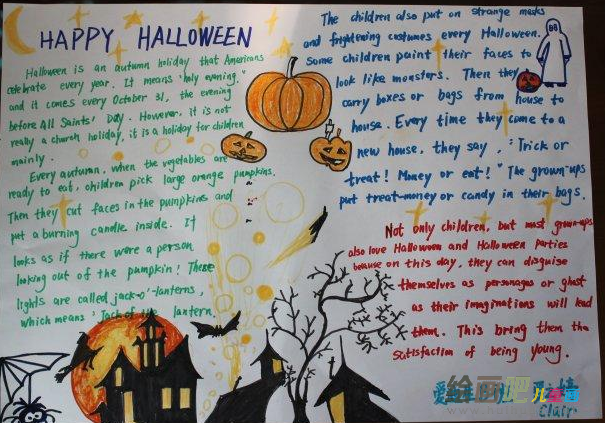 HAPPY HALLOWEEN
Halloween is an autumn holiday that Americans
celebrate every year. It means "holy evening,"
and it comes every October 31, the evening
before All Saints' Day. However, it is not
really a church holiday, it is a holiday for children
mainly.
Every autumn, when the vegetables are
ready to eat, children pick large orange pumpkins.
Then they cut faces in the pumpkins and
put a burning candle inside. It
looks as if there were a person
looking out of the pumpkin! These
lights are called jack-o'-lanterns,
which means "Jack of the lantern.
The children also put on strange masks
and frightening costumes every Halloween.
Some children paint their faces to
look like monsters. Then they
carry boxes or bags from house to
house. Every time they come to a
new house, they say, "Trick or
treat! Money or eat!" The grown-ups
put treat-money or candy in their bags.
Not only children, but most grown-ups
also love Halloween and Halloween parties
because on this day, they can disguise
themselves as personages or ghost
as their imaginations will lead
them. This bring them the
satisfaction of being young.
Clair
绘画吧